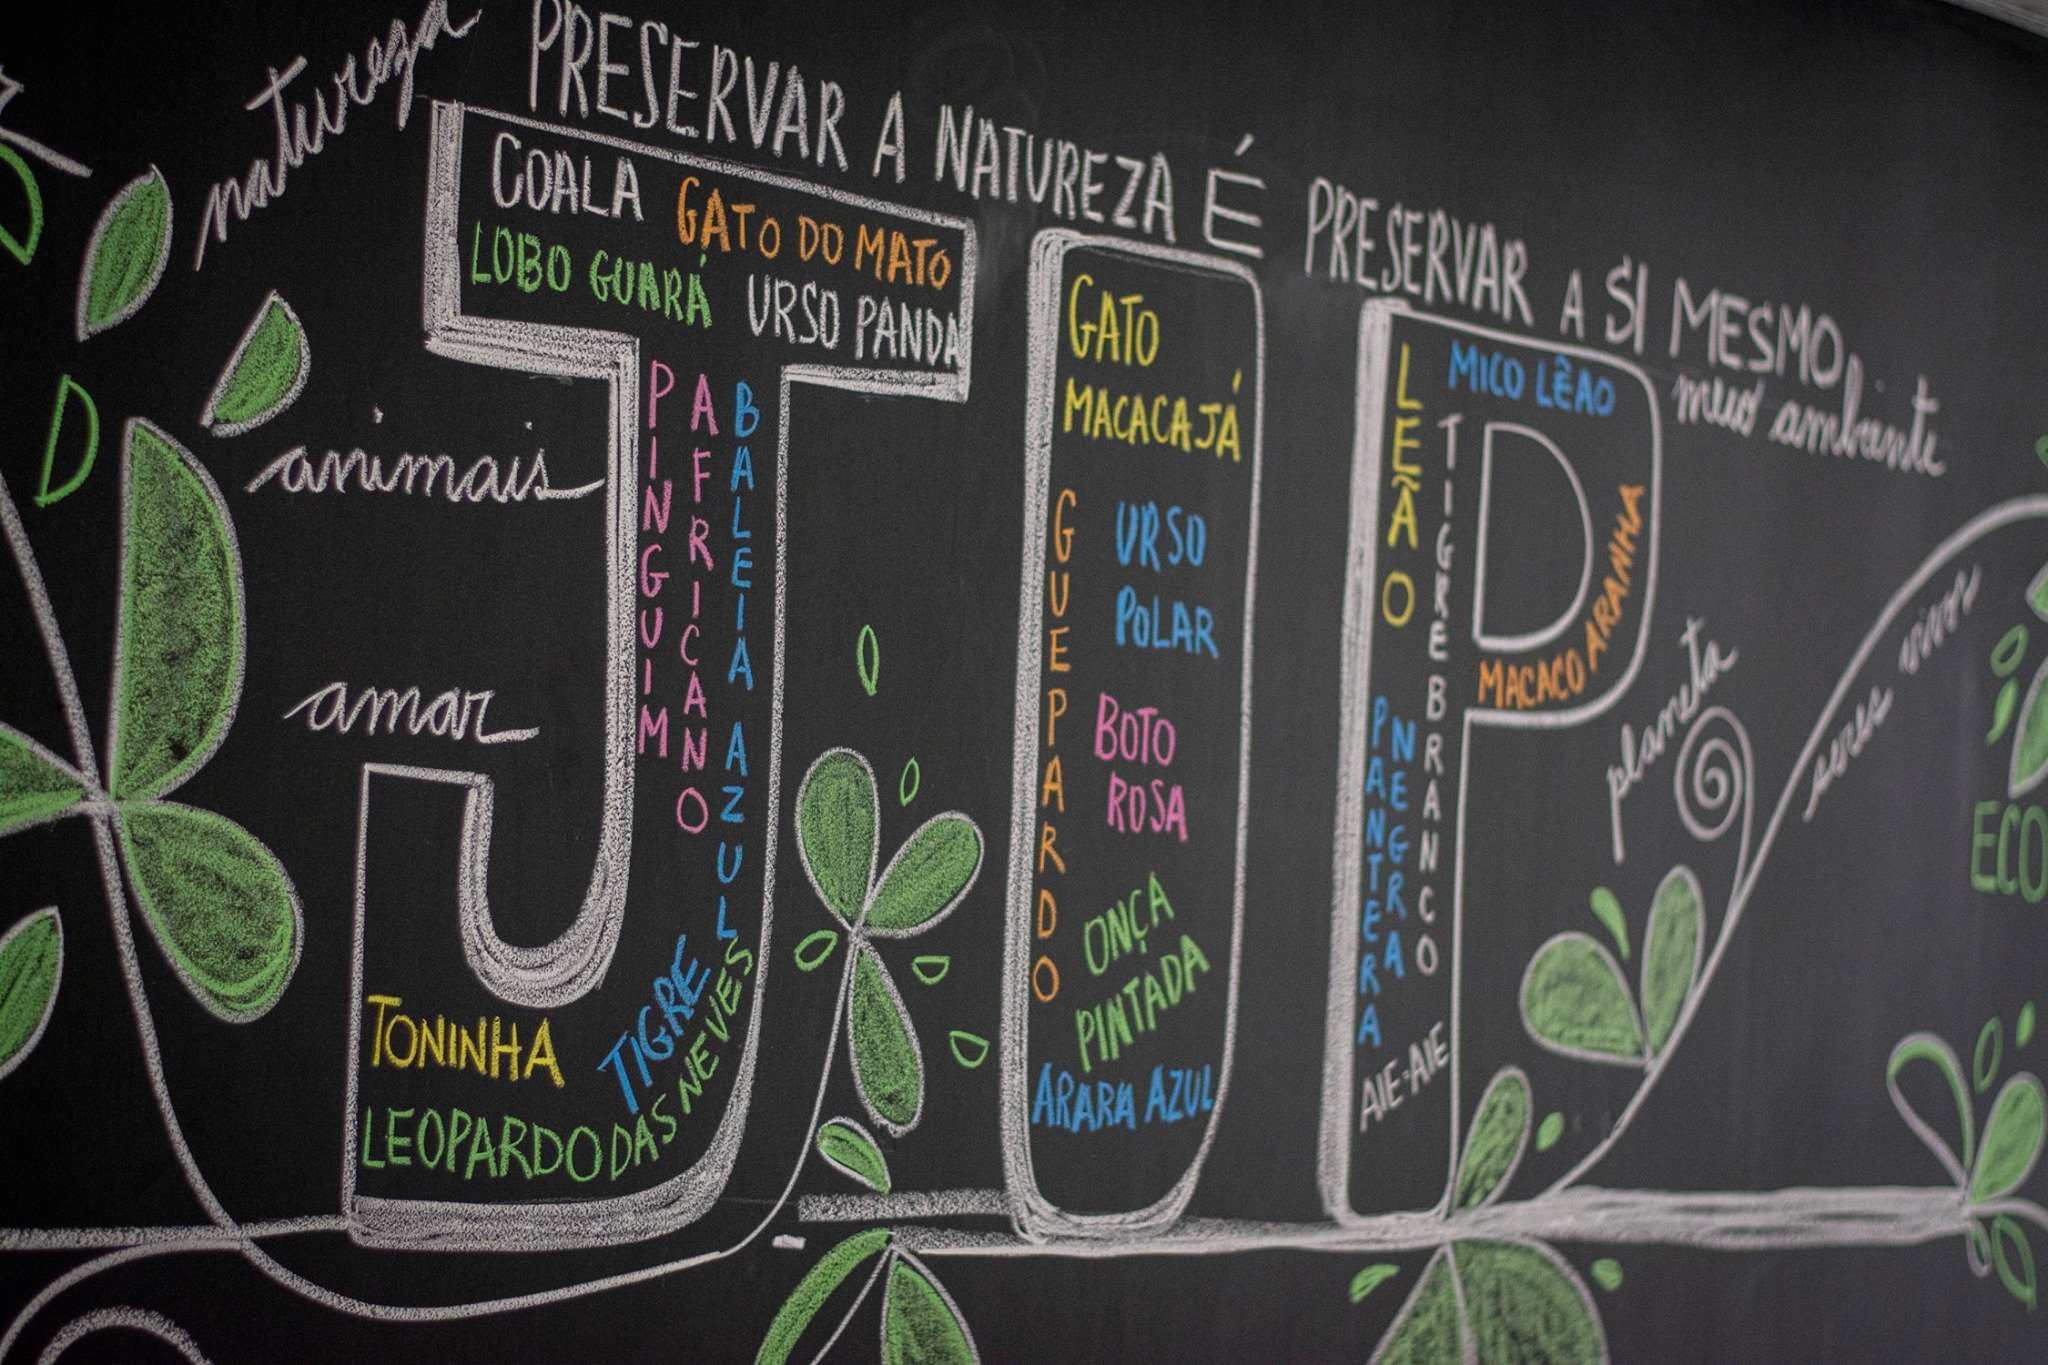 natureza
PRESERVAR A NATUREZA É PRESERVAR A SI MESMO
COALA
GATO DO MATO
LOBO GUARÁ
URSO PANDA
PINGUIM
AFRICANO
BALEIA AZUL
animais
amar
TONINHA
TIGRE
LEOPARDO DAS NEVES
J
I
P
GATO
MACACAJÁ
GUEPARDO
URSO
POLAR
BOTO
ROSA
ONÇA
PINTADA
ARARA AZUL
LEÃO
MICO LÊAO
TIGRE BRANCO
MACACO ARANHA
PANTERA
NEGRA
AIE-AIE
meio ambiente
planeta
seres vivos
ECO